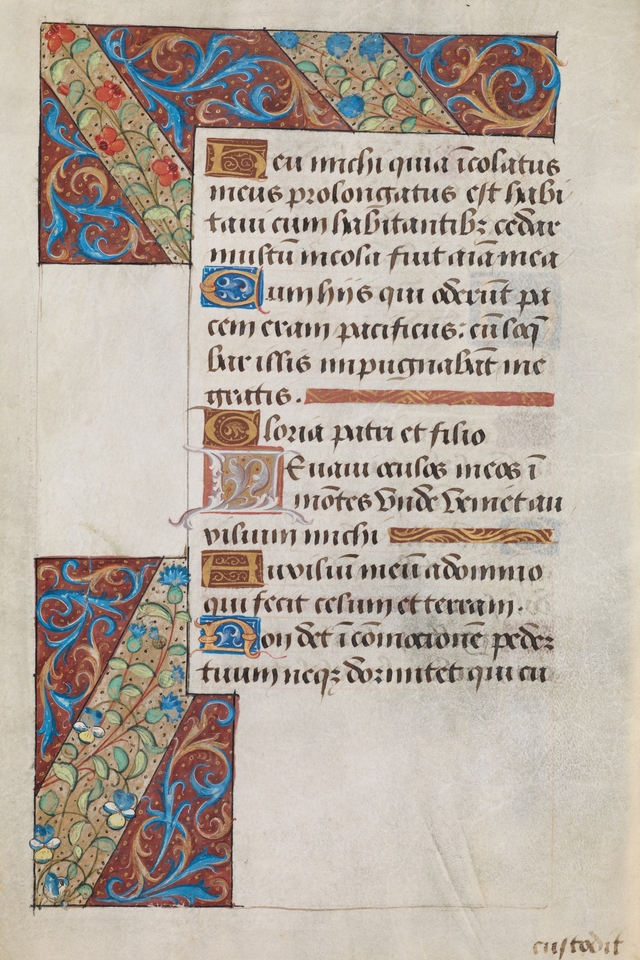 Heu michi quia īcolatus
meus prolongatus est habi
taui cum habitantibꝫ cedar
multū incola fuit aīa mea
Cum hiis qui oderūt pa
cem eram pacificus: cū loq̄
bar illis impugnabāt me
gratis.
Gloria patri et filio
Leuaui oculos meos ī
mōtes vnde veniet au
xilium michi
Auxiliū meū a domino
qui fecit celum et terram.
Non det ī cōmocionē pedeꝫ
tuum neqꝫ dormitet qui cu
custodit